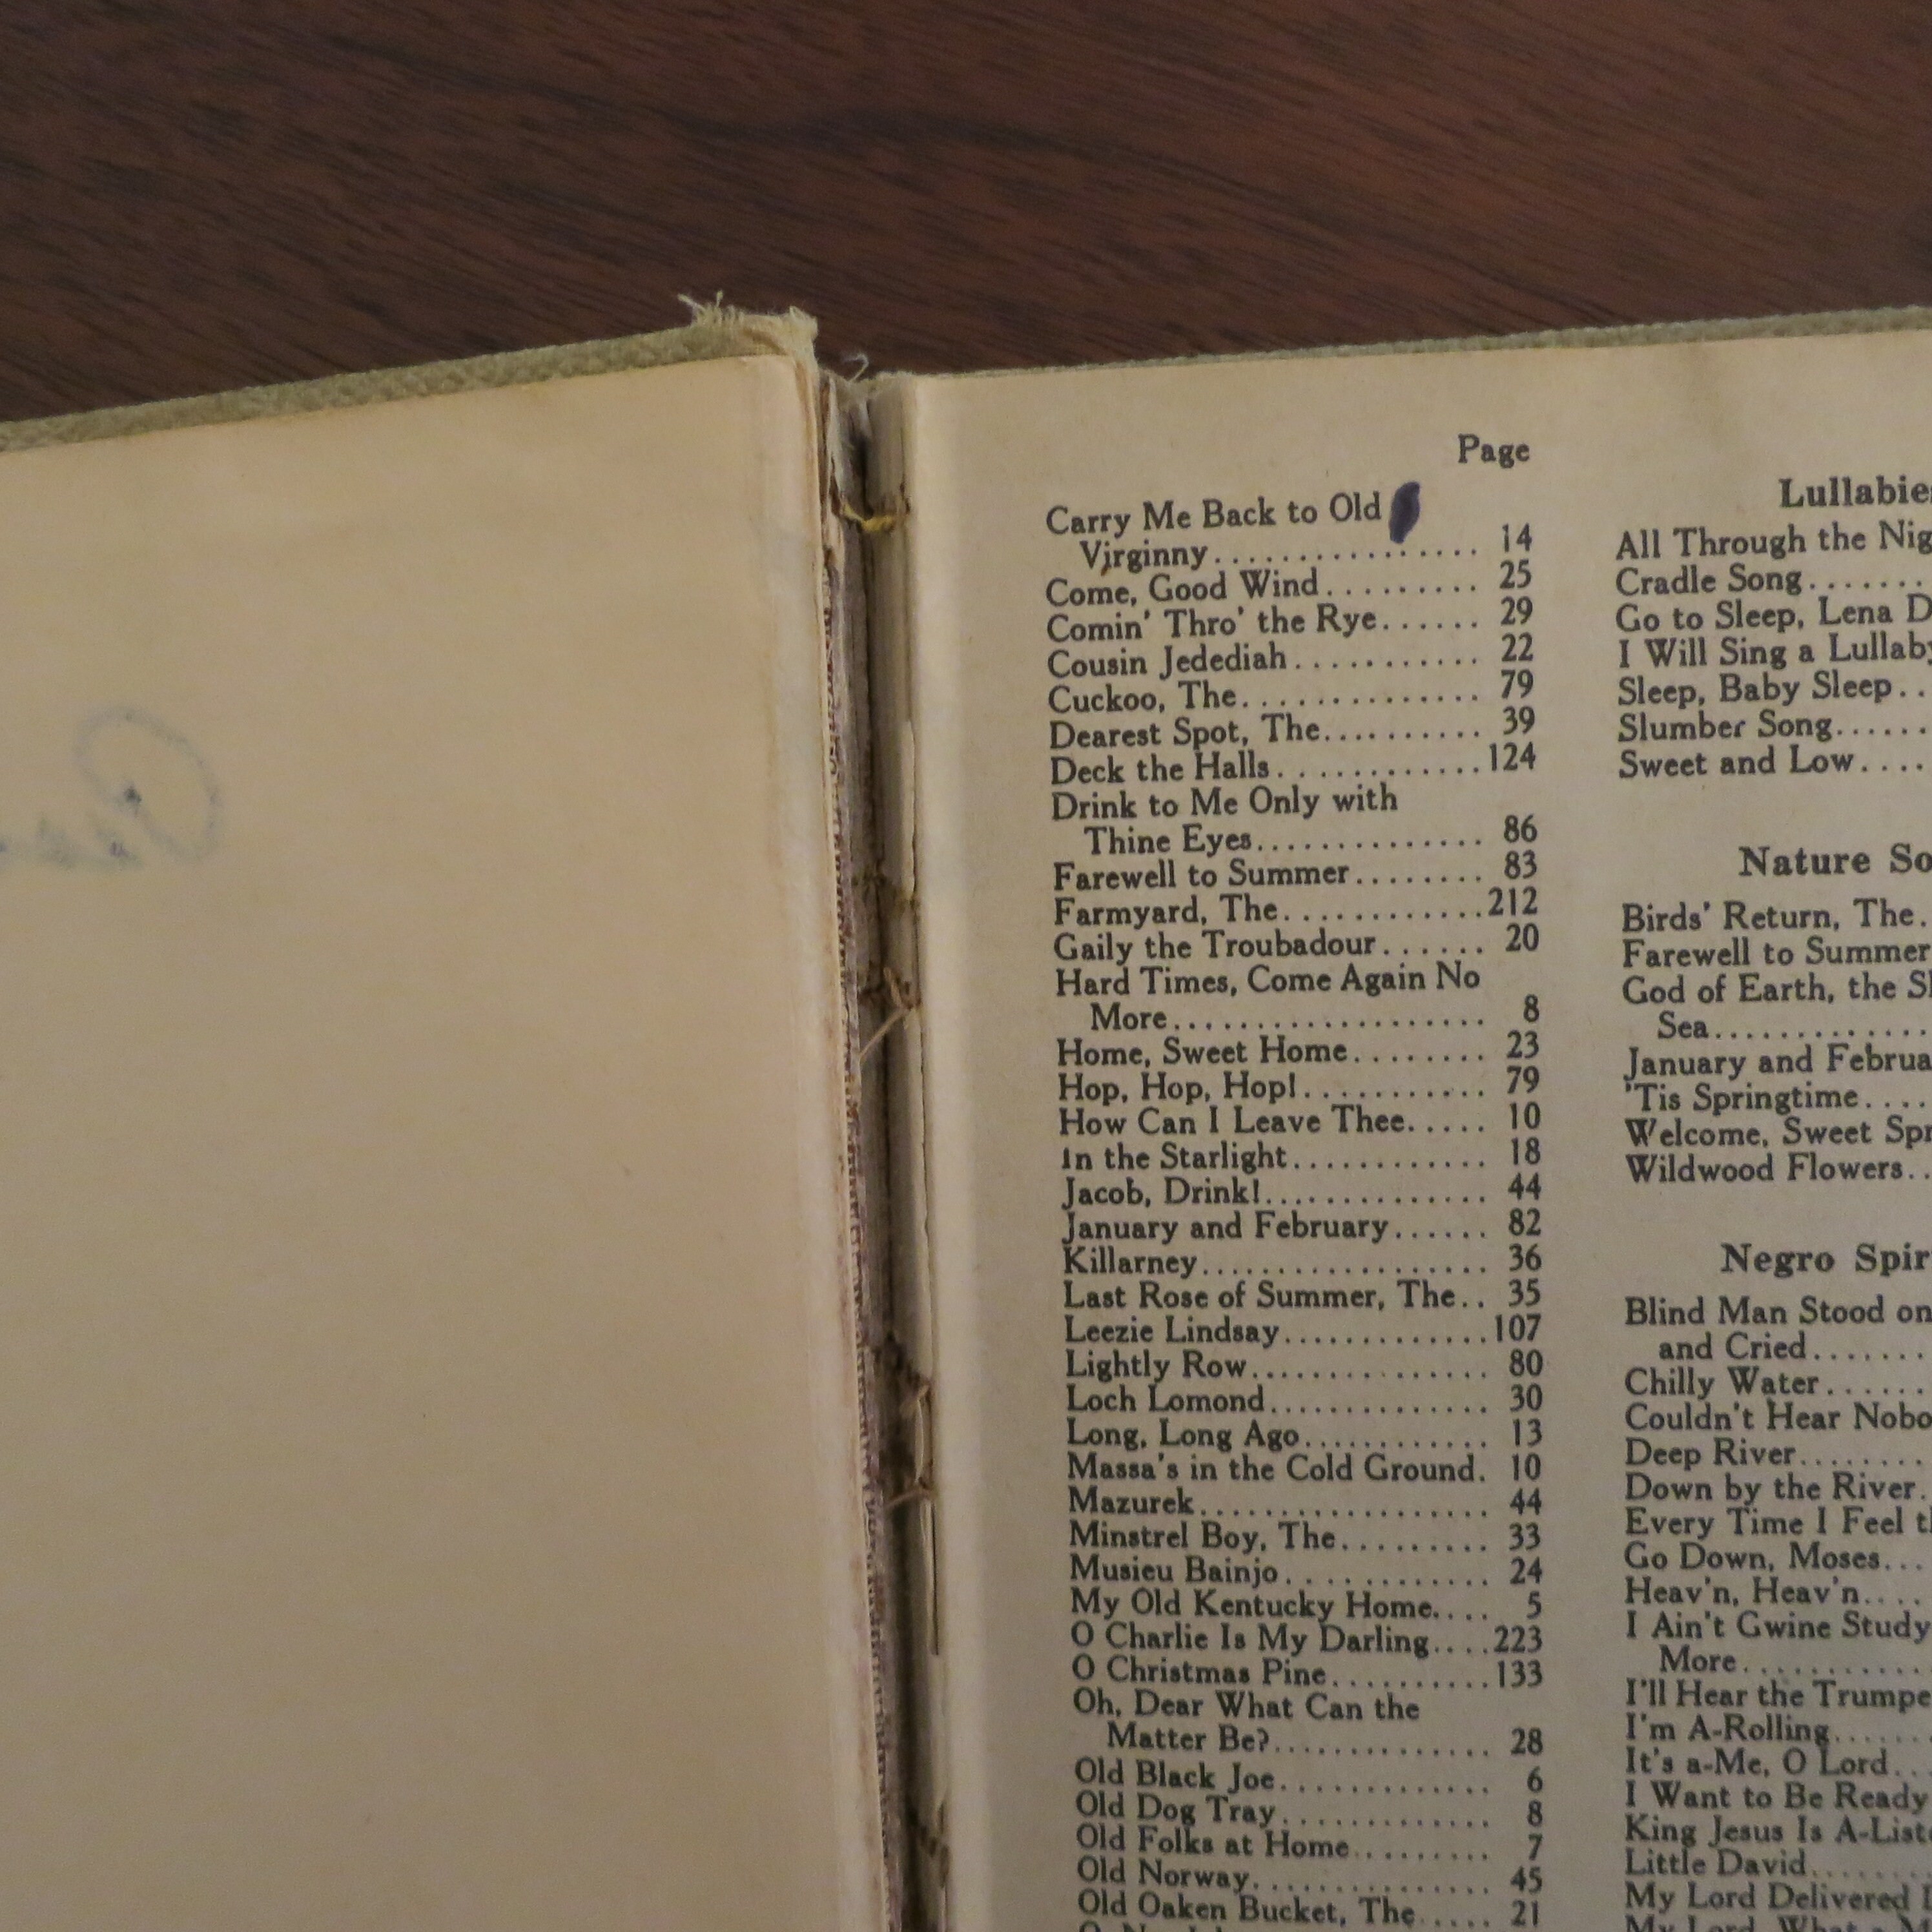 Page
Carry Me Back to Old
Virginny.................. 14
Come, Good Wind......... 25
Comin' Thro' the Rye...... 29
Cousin Jedediah........... 22
Cuckoo, The.............. 79
Dearest Spot, The.......... 39
Deck the Halls.............124
Drink to Me Only with
Thine Eyes.............. 86
Farewell to Summer........ 83
Farmyard, The.............212
Gaily the Troubadour...... 20
Hard Times, Come Again No
More................... 8
Home, Sweet Home........ 23
Hop, Hop, Hop!........... 79
How Can I Leave Thee..... 10
In the Starlight............ 18
Jacob, Drink!.............. 44
January and February...... 82
Killarney.................. 36
Last Rose of Summer, The.. 35
Leezie Lindsay.............107
Lightly Row............... 80
Loch Lomond.............. 30
Long, Long Ago............ 13
Massa's in the Cold Ground. 10
Mazurek.................. 44
Minstrel Boy, The......... 33
Musieu Bainjo............. 24
My Old Kentucky Home.... 5
O Charlie Is My Darling....223
O Christmas Pine..........133
Oh, Dear What Can the
Matter Be?.............. 28
Old Black Joe............. 6
Old Dog Tray............. 8
Old Folks at Home......... 7
Old Norway............... 45
Old Oaken Bucket, The..... 21
Lullabie
All Through the Nig
Cradle Song.......
Go to Sleep, Lena D
I Will Sing a Lullaby
Sleep, Baby Sleep..
Slumber Song......
Sweet and Low....
Nature So
Birds' Return, The.
Farewell to Summer
God of Earth, the Sk
Sea.............
January and Februa
'Tis Springtime....
Welcome, Sweet Spr
Wildwood Flowers..
Negro Spir
Blind Man Stood on
and Cried.......
Chilly Water......
Couldn't Hear Nobo
Deep River........
Down by the River.
Every Time I Feel th
Go Down, Moses...
Heav'n, Heav'n....
I Ain't Gwine Study
More............
I'll Hear the Trumpe
I'm A-Rolling......
It's a-Me, O Lord...
I Want to Be Ready
King Jesus Is A-Liste
Little David.......
My Lord Delivered